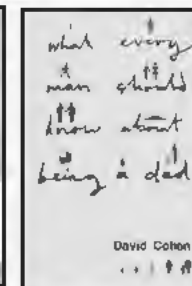 what every
man should
know about
being a dad
David Cohen